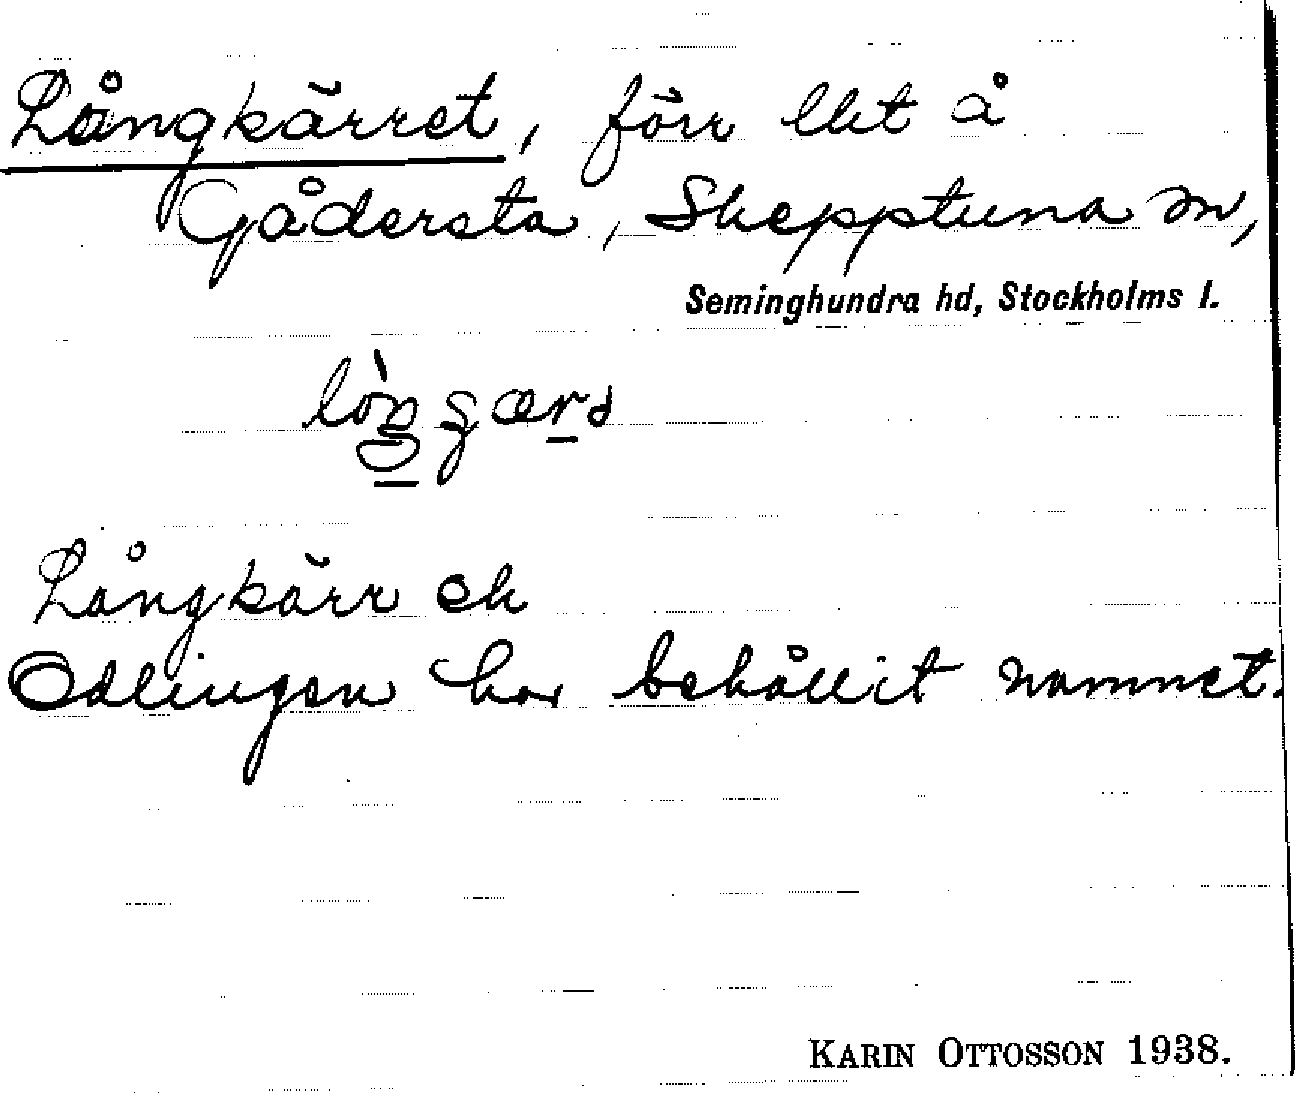 Långkärret, förr lht å
Gådersta, Skepptuna sn,
Seminghundra hd, Stockholms l.
Långkärr ek
Odlingen har behållit namnet.
KARIN OTTOSSON 1938.